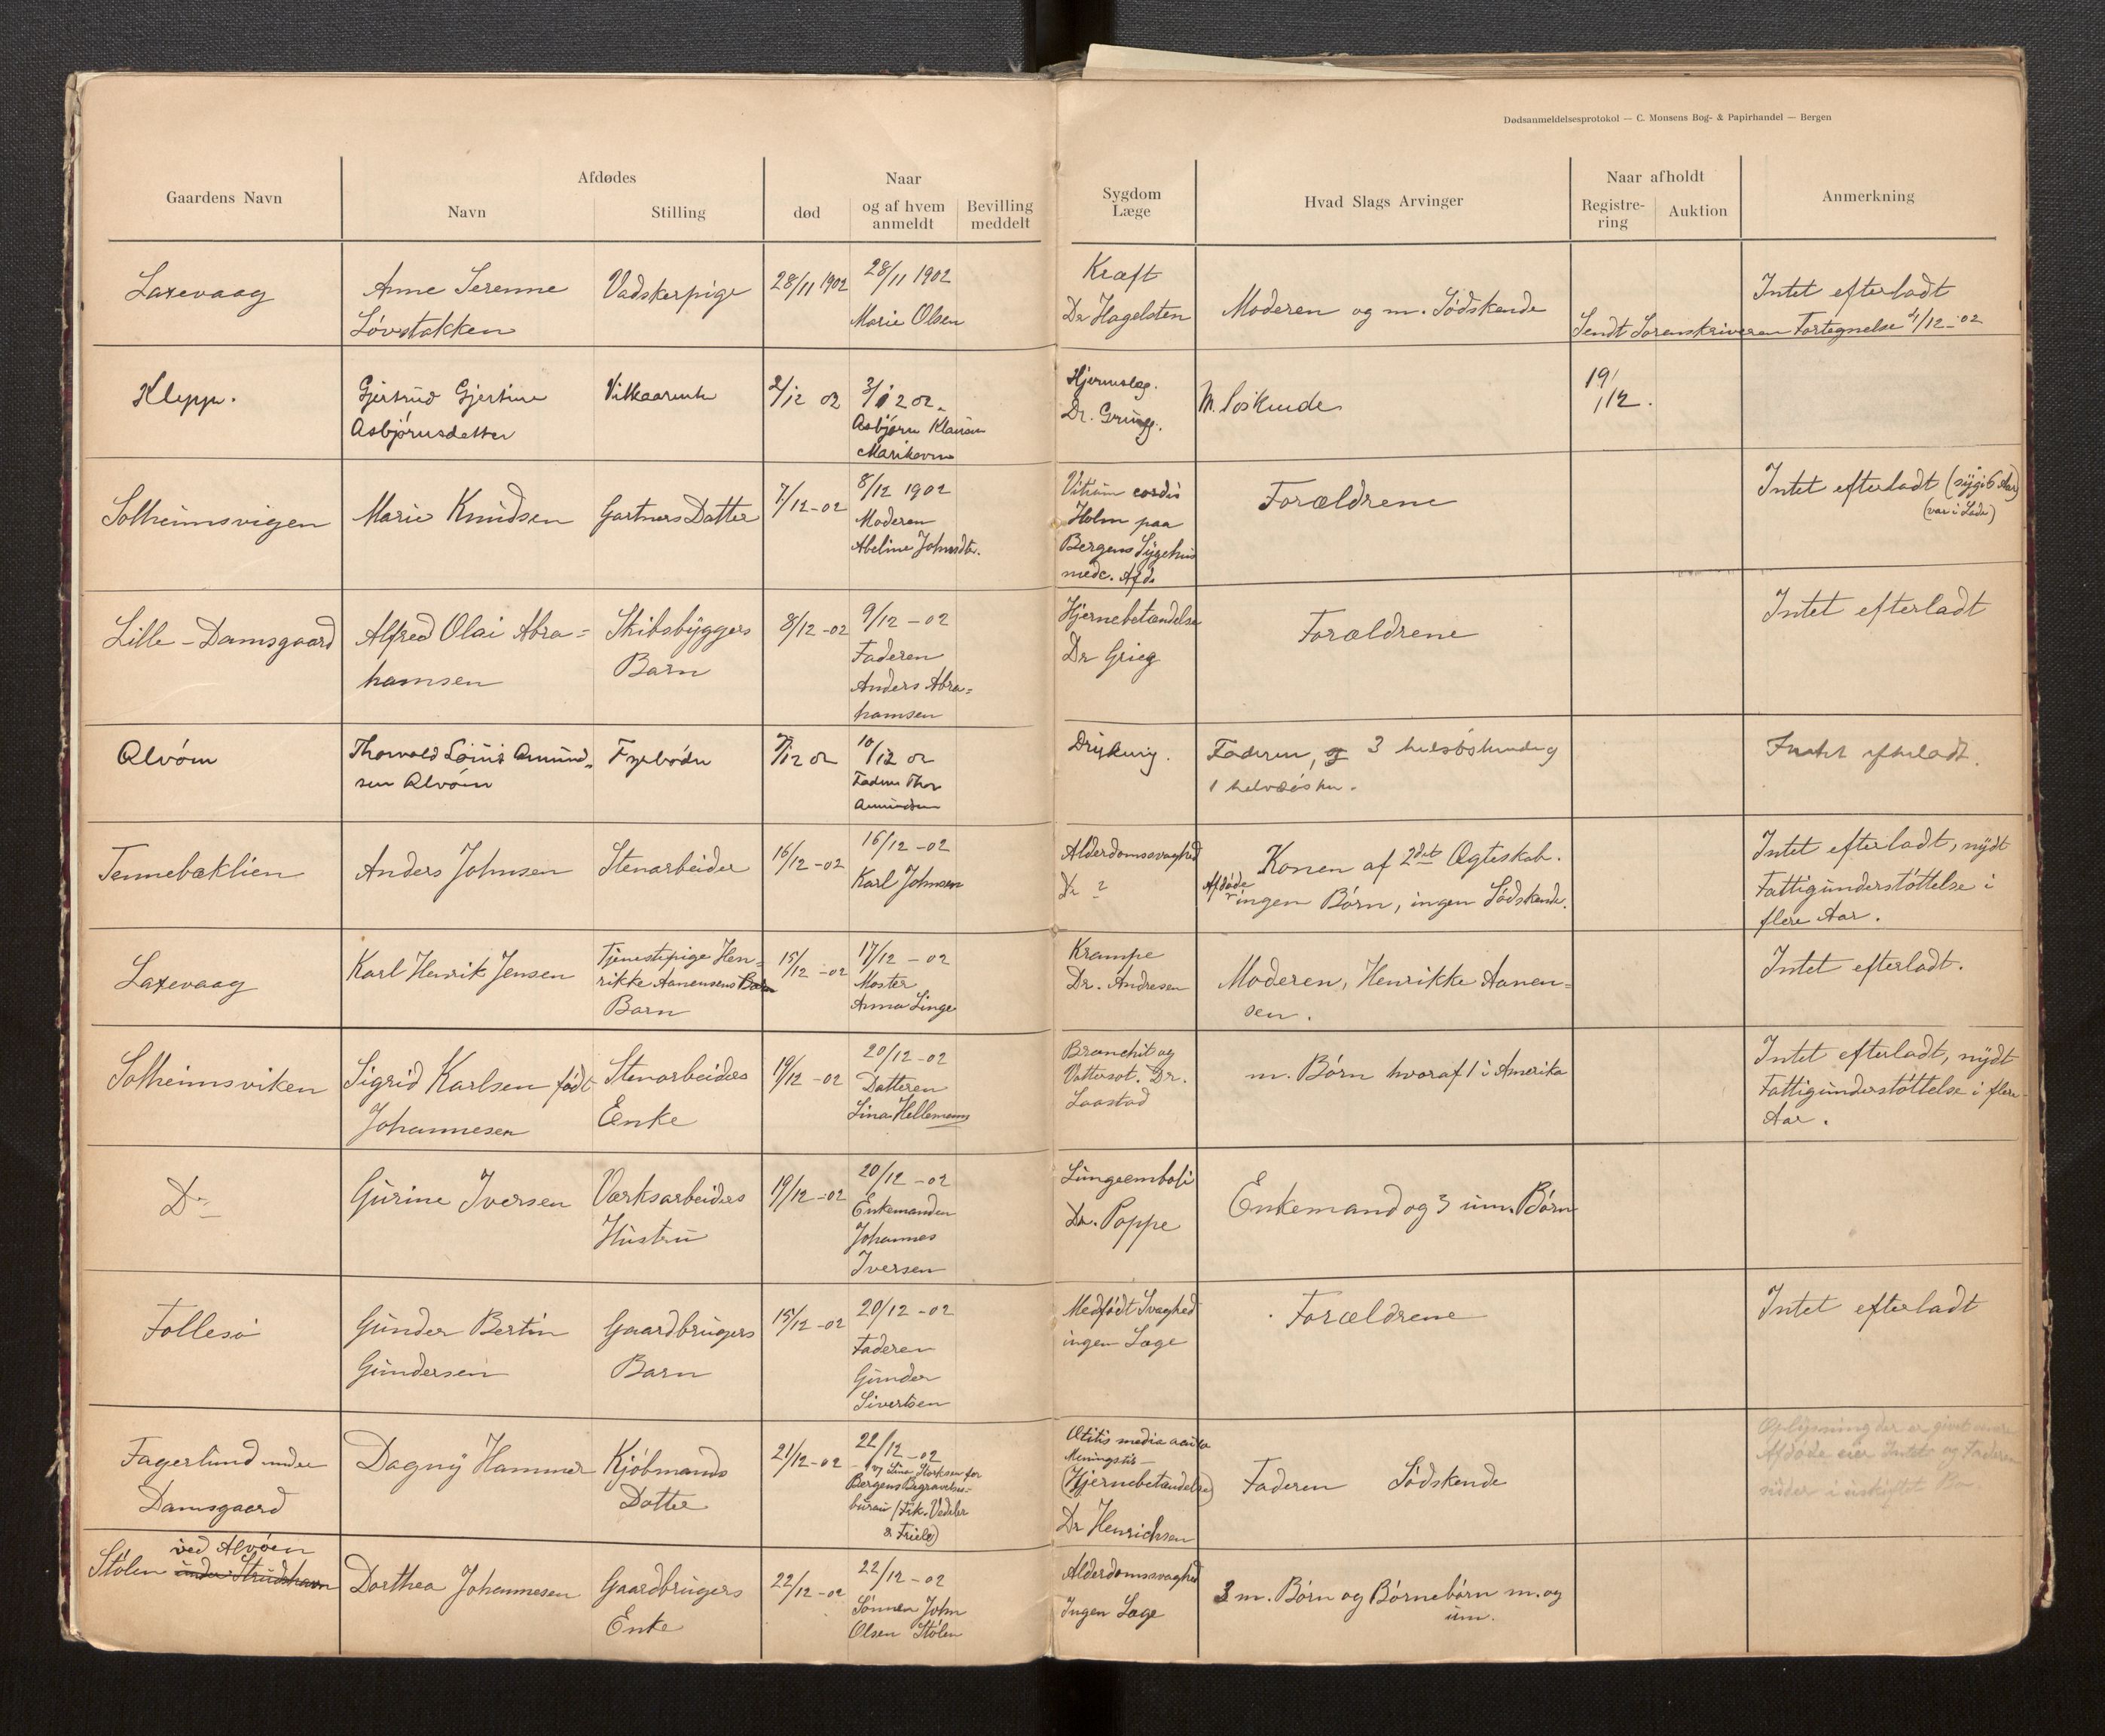 Dødsanmeldelsesprotokol — C. Monsens Bog- & Papirhandel — Bergen
Gaardens Navn
Afdødes
Navn
Stilling
Naar
død
og af hvem
anmeldt
Bevilling
meddelt
Sygdom
Læge
Hvad Slags Arvinger
Naar afholdt
Registre-
ring
Auktion
Anmerkning
Laxevaag
Anne Serenne
Løvstakken
Vadskerpige
28/11 1902
28/11 1902
Marie Olsen
Kræft
Dr Hagelsten
Moderen og m. Södskende
Intet efterladt
Sendt Sorenskriveren Fortegnelse 31/12-02
Klepp.
Gjertrud Gjertine
Asbjørnsdatter
Vilkaarente
2/12 02
3/12 02.
Asbjørn Klausen
Hjerneslag.
Dr. Grung.
M. Söskende
19/
/12.
Solheimsvigen
Marie Knudsen
Gartners Datter
7/12-02
8/12 1902
Moderen
Abeline Johnsdtr.
Vitium cordis
Holm paa
Bergens Sygehus
medc. Afd.
Forældrene
Intet efterladt (syg i 6 Aar)
(var i Lade)
Lille-Damsgaard
Alfred Olai Abra=
hamsen
Skibsbyggers
Barn
8/12-02
9/12-02
Faderen
Anders Abra=
hamsen
Hjernebetændelse
Dr Grieg
Forældrene
Intet efterladt
Alvøen
Thorvald Louis Amund-
sen Alvøen
Fyrbøder
9/12 02
10/12 02
Faderen Thor
Amundsen
Drukning.
Faderen, og 3 helsøskende og
1 halvsøsken.
Intet efterladt.
Tennebæklien
Anders Johnsen
Stenarbeider
16/12-02
16/12-02
Karl Johnsen
Alderdomssvaghed
Dr ?
Konen af 2det Ægteskab.
Afdøde
ingen Börn, ingen Södskende.
Intet efterladt, nydt
Fattigunderstøttelse i
flere Aar.
Laxevaag
Karl Henrik Jensen
Tjenestepige Hen-
rikke Aanensens Barn
Barn
15/12-02
17/12-02
Moster
Anna Linge
Krampe
Dr. Andresen
Moderen, Henrikke Aanen=
sen.
Intet efterladt.
Solheimsviken
Sigrid Karlsen født
Johannesen
Stenarbeiders
Enke
19/12-02
20/12-02
Datteren
Lina Hellemann
Bronchit og
Vattersot. Dr.
Laastad
m. Börn hvoraf 1 i Amerika
Intet efterladt, nydt
Fattigunderstøttelse i flere
Aar.
Do
Gurine Iversen
Værksarbeiders
Hustru
19/12-02
20/12-02
Enkemanden
Johannes
Iversen
Lungeemboli
Dr. Poppe
Enkemand og 3 um. Börn
Follesø
Gunder Bertin
Gundersen
Gaardbrugers
Barn
15/12-02
20/12-02
Faderen
Gunder
Sivertsen
Medfødt Svaghed
ingen Læge
Forældrene
Intet efterladt
Fagerlund under
Damsgaard
Dagny Hammer
Kjøbmands
Datter
21/12-02
22/12-02
v/ Lina Storksen for
Bergens Begravelses-
bureau (Frk. Vedeler
& Friele)
Otitis media acuta
Meningitis-
(Hjernebetændelse)
Dr Henrichsen
Faderen Södskende
Oplysning der er givet
Afdøde eier Intet og Faderen
sidder i uskiftet Bo.
ved Alvøen
Stölen under Strudshavn
Dorthea Johannesen
Gaardbrugers
Enke
22/12-02
22/12-02
Sønnen John
Olsen Stölen
Alderdomssvaghed
Ingen Læge
3 m. Börn og Börnebörn m. og
um.